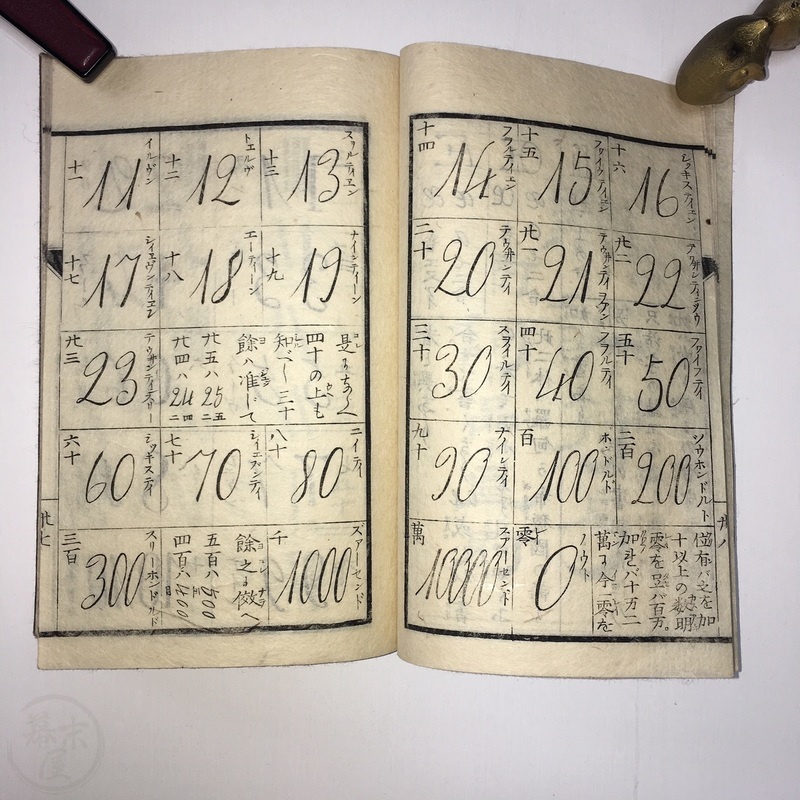 イルヴン
11
十一
トエルヴ
12
十二
スルティエン
13
十三
フヲルティエン
14
十四
フアイフティエン
15
十五
シッキスティエン
16
十六
シイェヴンティエン
17
十七
エーティーン
18
十八
ナインティーン
19
十九
テウヱンティ
20
二十
テウヱンティヲヲン
21
廿一
テウヱンティテウ
22
廿二
テウヱンティスリー
23
廿三
廿四ハ24
廿五ハ25
餘ハ准じて
知べし三十
四十の上も
スヲイルティ
30
三十
フヲルティ
40
四十
フアイフティ
50
五十
シッキスティ
60
六十
シイェヴンティ
70
七十
エイティ
80
八十
ナインティ
90
九十
ホンドルド
100
百
ツウホンドルト
200
二百
スリーホンドルド
300
三百
四百ハ400
五百ハ500
餘之に傚へ
スアーセンド
1000
千
スアーセンド
10000
萬
ノウト
0
零
萬に今一零を
加ヱバ十万二
零を足バ百万。
十以上の数明
位有バ之を加
廿七
幕末屋